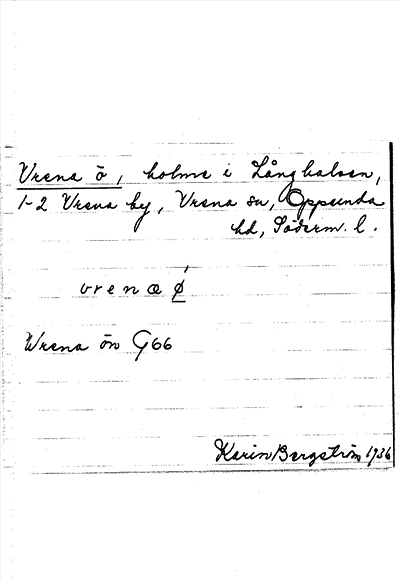 Vrena ö, holme i Långhalsen,
1-2 Vrena by, Vrena sn, Oppunda
hd, Söderm. l.
vrenæ ǿ
Wrena ön G66
Karin Bergström 1936